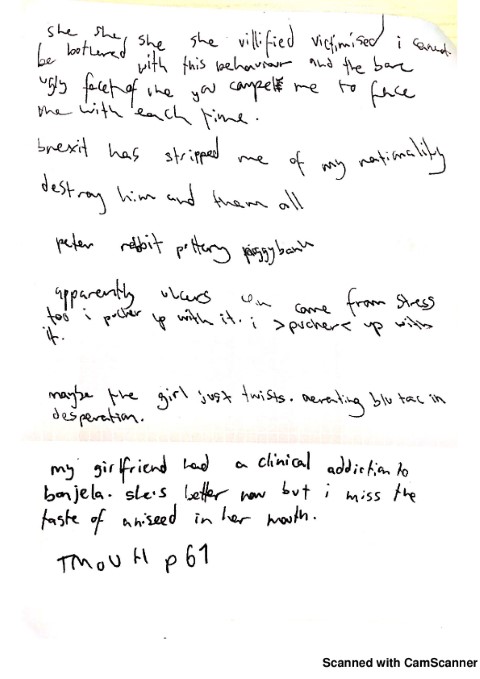 she she, she she villified victimised i cannot
be bothered with this behaviour and the bare
ugly facet of me you compel me to face
me with each time.
brexit has stripped me of my nationality
destroy him and them all
peter rabbit pottery piggybank
apparently ulcers can come from stress
too i pucker up with it. i >pucker< up with
it.
maybe the girl just twists. aerating blu tac in
desperation.
my girlfriend had a clinical addiction to
bonjela. she's better now but i miss the
taste of aniseed in her mouth.
TMOUH p61
Scanned with CamScanner